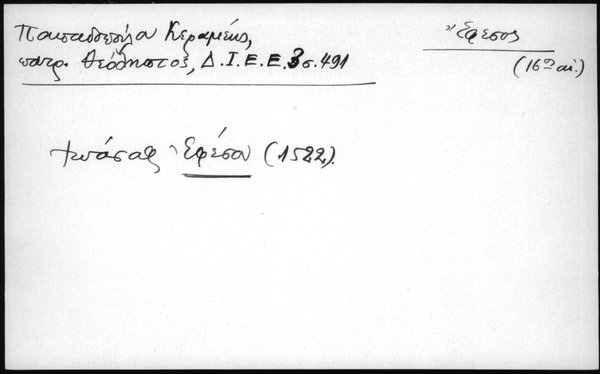 Παπαδοπούλου Κεραμέως,
πατρ. Θεόληπτος, Δ.Ι.Ε.Ε. 3 σ. 491
Ἔφεσος
(16ος αἰ.)
Ἐφέσου (1522).